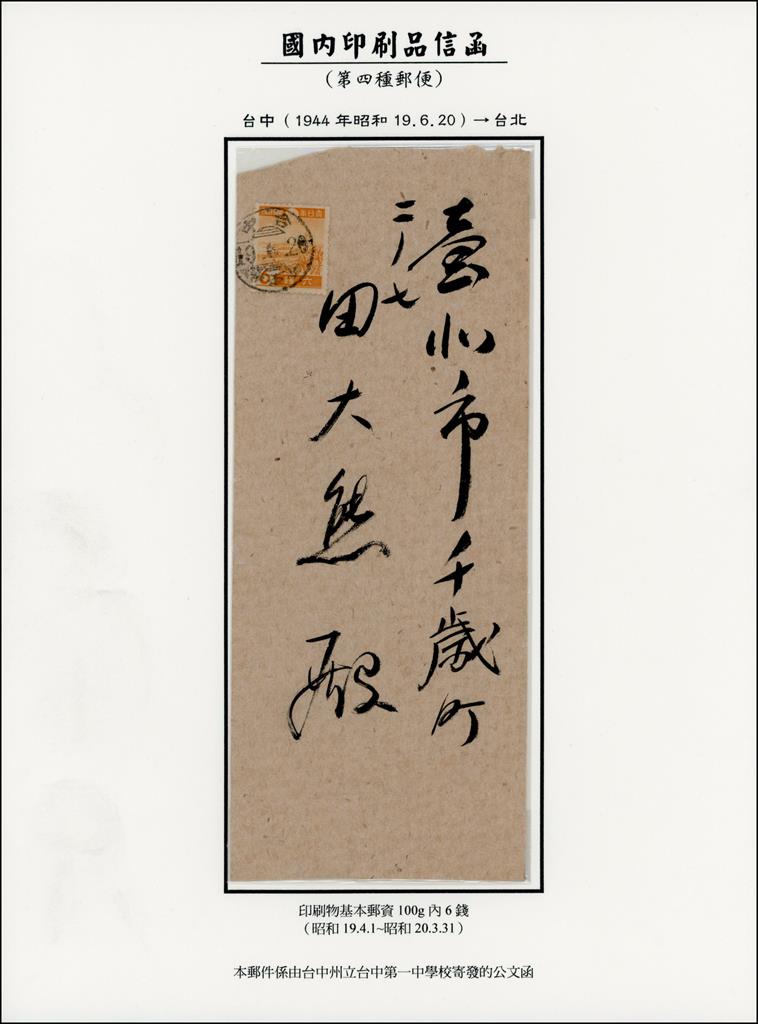 國內印刷品信函
（第四種郵便）
台中（1944 年昭和 19.6.20）→台北
臺北市千歳町
二ノ七
田大熊殿
印刷物基本郵資 100g 內 6 錢
（昭和 19.4.1~昭和 20.3.31）
本郵件係由台中州立台中第一中學校寄發的公文函